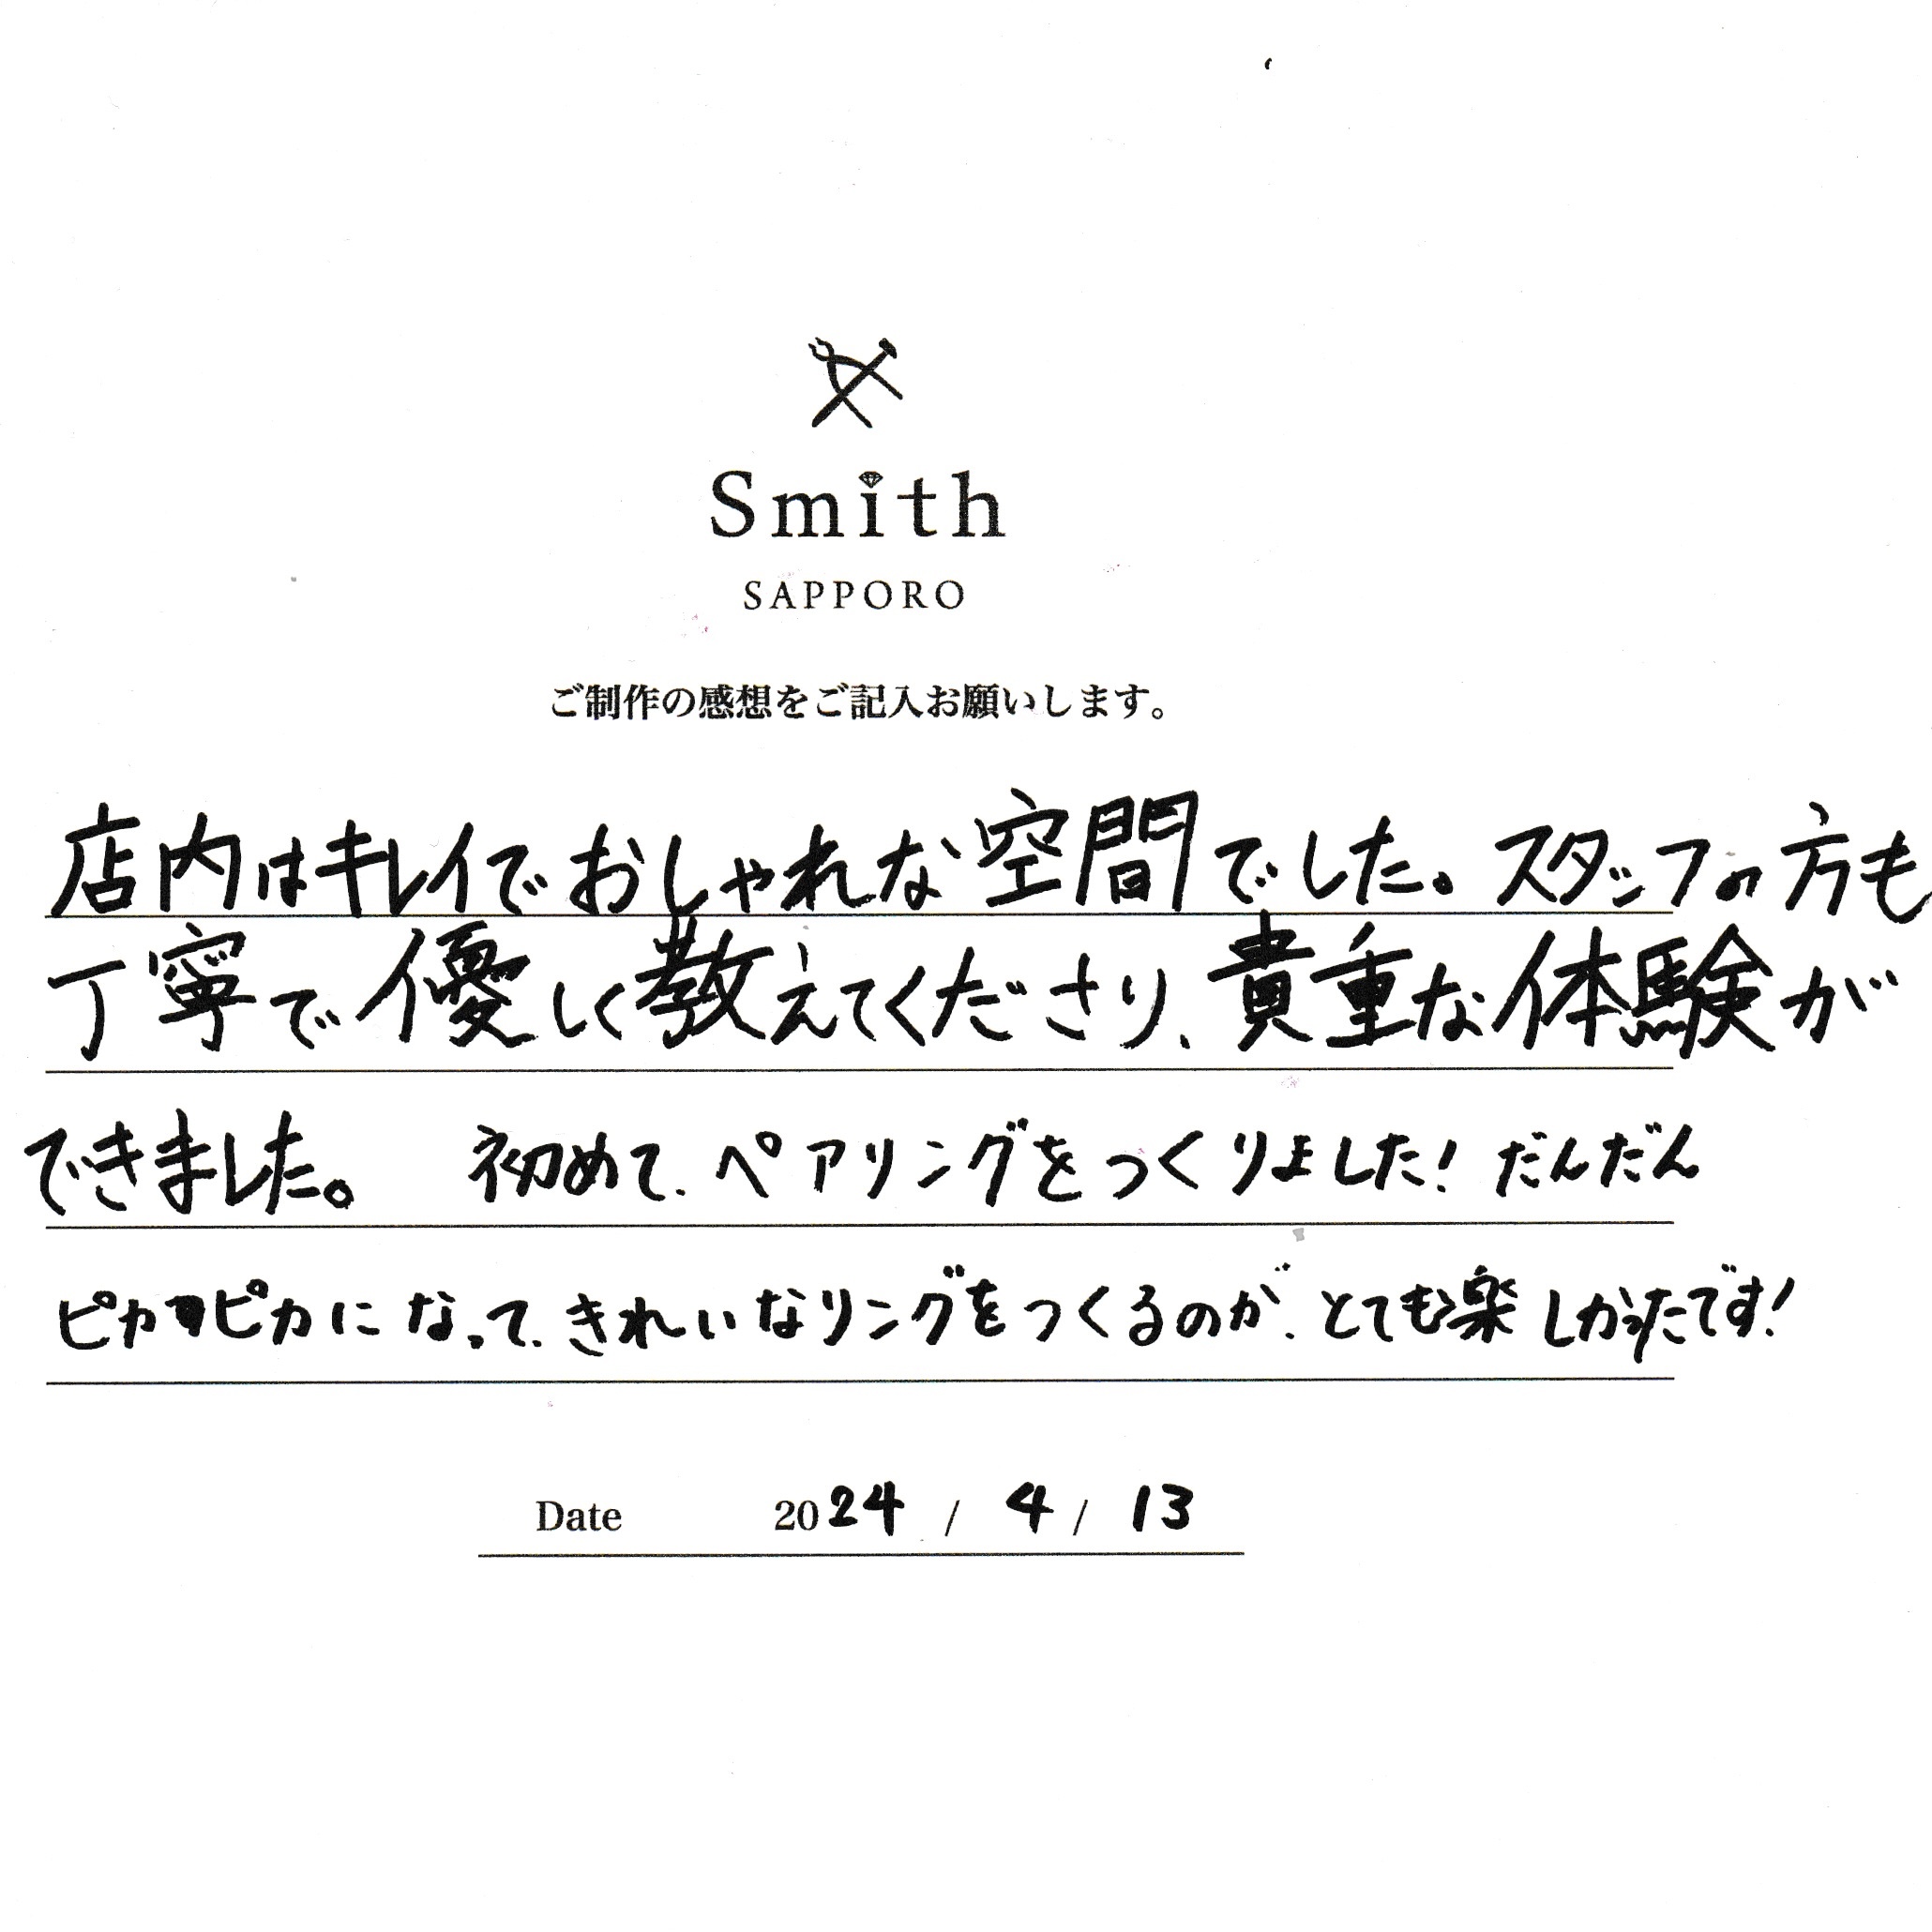 Smith
SAPPORO
ご制作の感想をご記入お願いします。
店内はキレイでおしゃれな空間でした。スタッフの方も
丁寧で優しく教えてくださり、貴重な体験が
できました。 初めて、ペアリングをつくりました! だんだん
ピカピカになって、きれいなリングをつくるのが、とても楽しかったです!
Date 2024 / 4 / 13